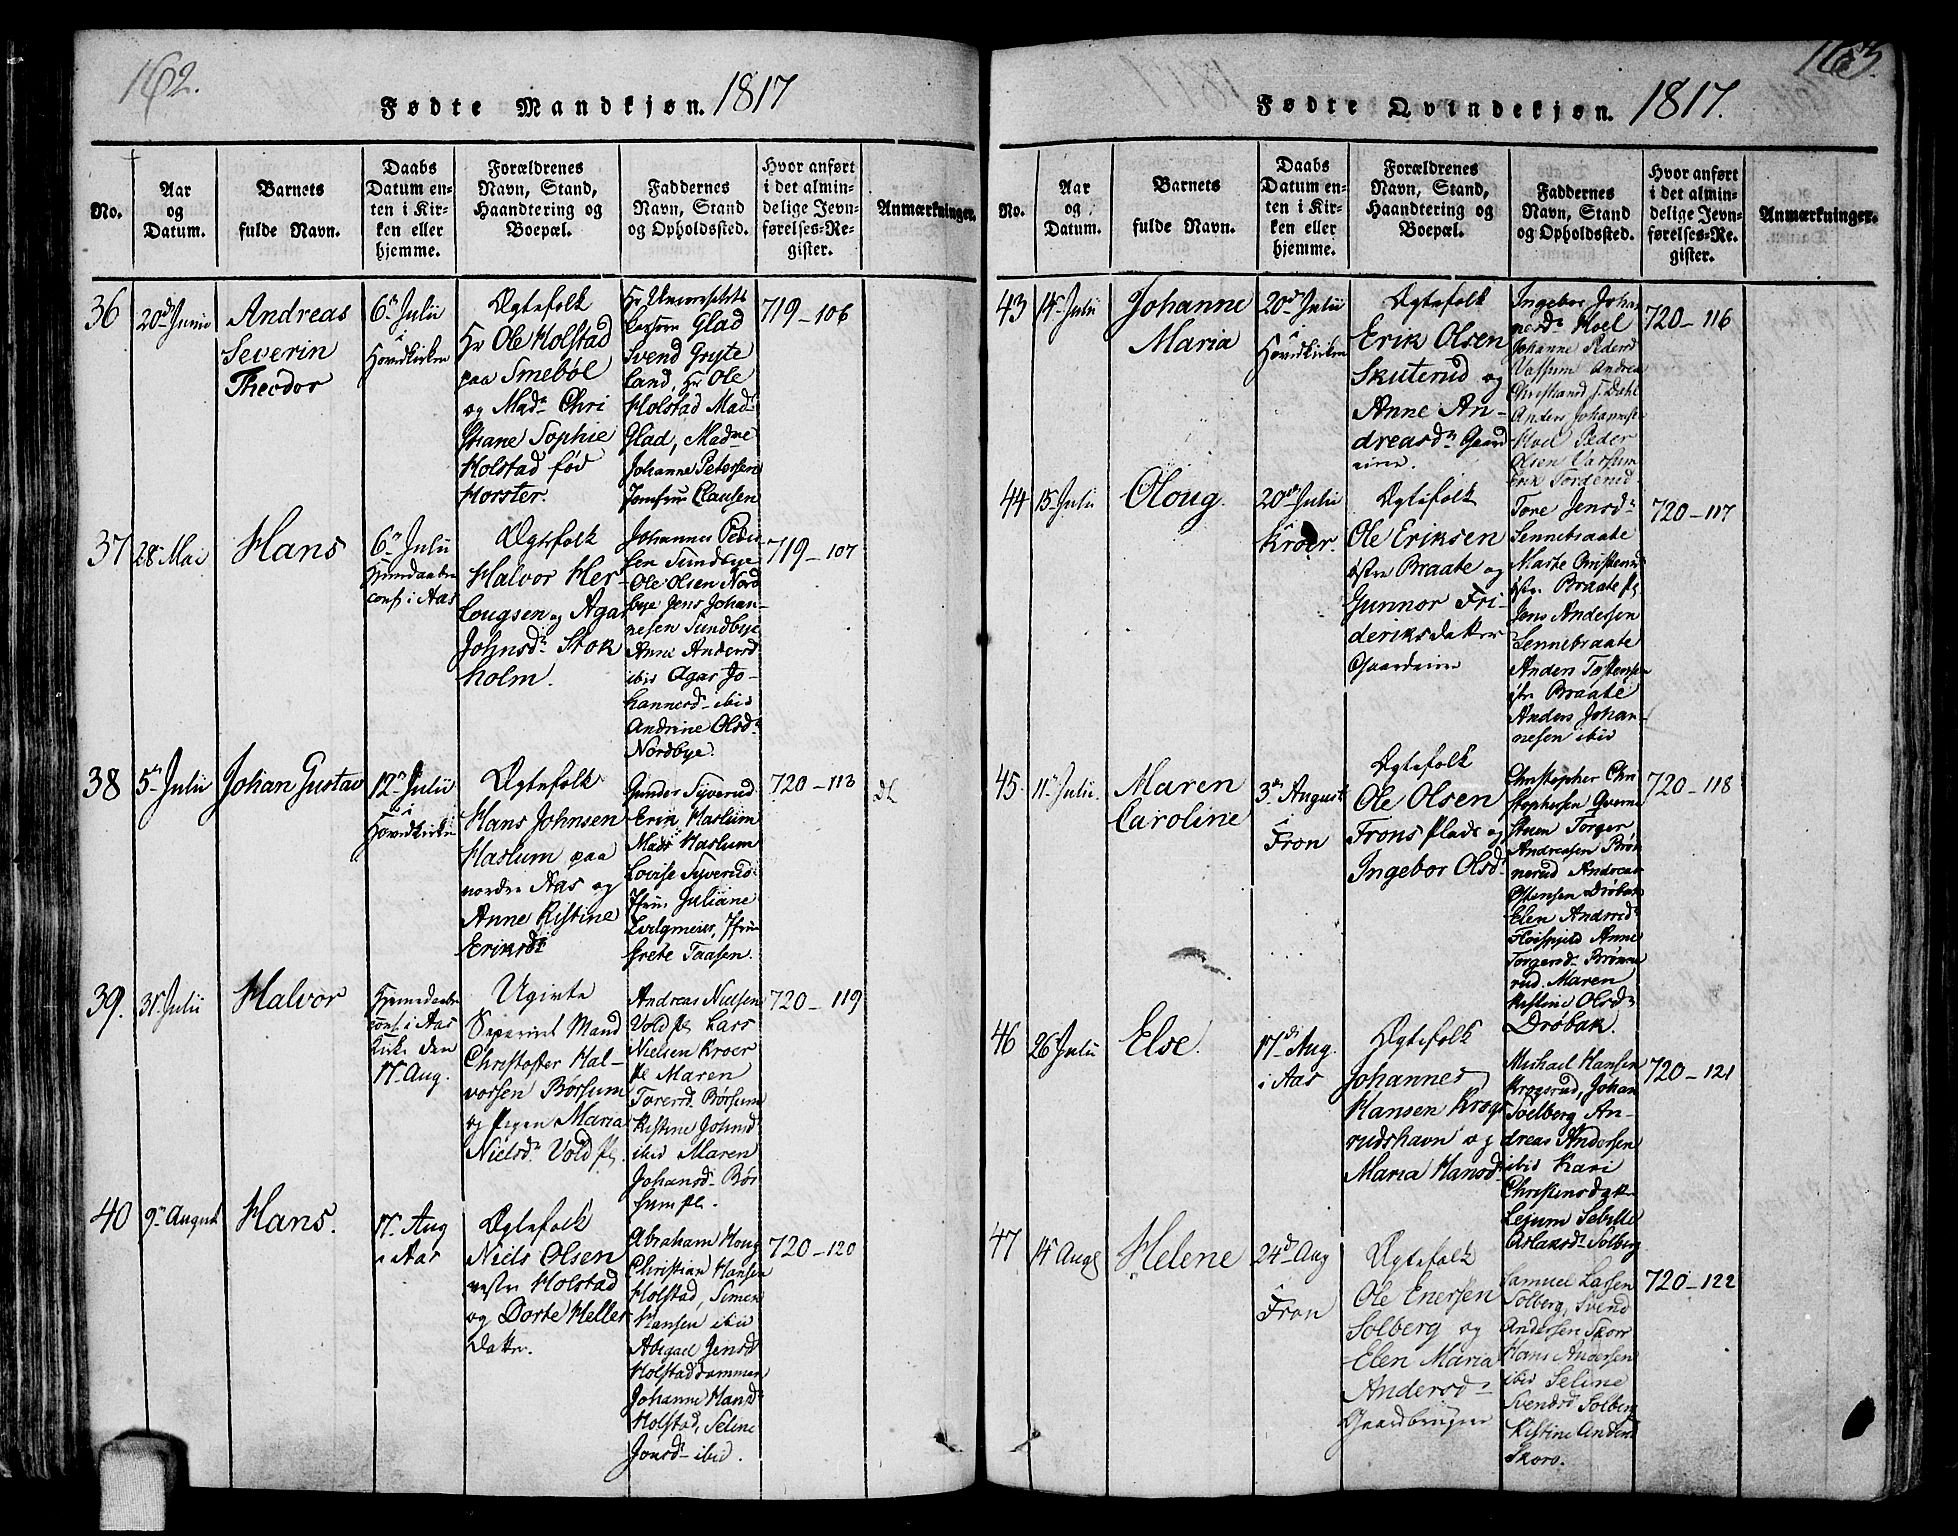 162.
Fødte Mandkjøn. 1817
No.
Aar
og
Datum.
Barnets
fulde Navn.
Daabs
Datum en-
ten i Kir-
ken eller
hjemme.
Forældrenes
Navn, Stand,
Haandtering og
Boepæl.
Faddernes
Navn, Stand
og Opholdssted.
Hvor anført
i det almin-
delige Jevn-
førelses-Re-
gister.
Anmærkninger.
36
20d Junii
Andreas
Severin
Theodor
6n Julii
i
Hovedkirken
Ægtefolk
Hr Ole Holstad
paa Smebøl
og Madn Chri
stiane Sophie
Holstad fød
Horster.
Glad
Svend Gryte
land, Hr Ole
Holstad Mad
Glad, Madme
Johanne Petersen
Jomfru Clausen
719-106
37
28 Mai
Hans
6n Julii
Hjemdaabn
conf. i Aas
Ægtefolk
Halvor Her-
lougsen og Agar
Johnsdn Stok
holm.
Johannes Peder
sen Sundbye
Ole Olsen Nord
bye Jens Johan-
nesen Sundbye
Anne Andersd
ibid Agar Jo-
hannesd ibid
Andrine Olsdn
Nordbye.
719-107
38
5n Julii
Johan Gustav
12n Julii
i
Hovedkirken
Ægtefolk
Hans Johnsen
Haslum paa
nordre Aas og
Anne Kistine
Eriksdn
Gunder Syverud
Erik Haslum
Mads Haslum
Lovise Syverud
Jfru Juliane
Jfru
Grete Taasen.
720-113
39.
31 Julii
Halvor
Hjemedaabn
conf. i Aas
Kirke den
17 Aug.
Ugivte
Separeret Mand
Christoffer Hal-
vorsen Børsum
og Pigen Maria
Nielsdn Vold pl.
Andreas Nielsen
Vold pl Lars
Nielsen Kroer
pl Maren
Toresd. Børsum
Kistine Johnsd
ibid Maren
Johansd Bør
sum pl.
720-119
40
9n August
Hans.
17 Aug
i Aas
Ægtefolk
Niels Olsen
vestre Holstad
og Dorte Heller
Datter.
Abraham Houg
Christian Hansen
Holstad, Simen
Hansen ibid
Abigael Jensd
Holstaddammen
Johanne Hansdn
Holstad, Seline
Jonsd ibid.
720-120
163.
Fødte Qvindekjøn. 1817.
No.
Aar
og
Datum.
Barnets
fulde Navn.
Daabs
Datum en-
ten i Kir-
ken eller
hjemme.
Forældrenes
Navn, Stand,
Haandtering og
Boepæl.
Faddernes
Navn, Stand
og Opholdssted.
Hvor anført
i det almin-
delige Jevn-
førelses-Re-
gister.
Anmærkninger.
43
14 Julii
Johanne
Maria
20d Julii
i
Hovedkirken
Ægtefolk
Erik Olsen
Skuterud og
Anne An-
dreasdn Gaard
eiere.
Ingebor Joha
nesdn Hoel
Johanne Pedersd
Vassum Andrea
Christiansd S. Dahl
Anders Johannsen
Hoel Peder
Olsen Vassum
Erik Torderud
720-116
44
15 Julii
Oloug.
20de Julii
Kroer.
Ægtefolk
Ole Eriksen
østre Braate og
Gunnor Fri-
deriksdatter
Gaardeiere
Tore Jensdn
Sennebraate
Marte Christensd
østr. Braate pl
Jens Andersen
Sennebraate
Anders Tostensen
østr Braate
Anders Johan-
nesen ibid
720-117
45
11 Julii.
Maren
Caroline
3de August
i
Fron
Ægtefolk
Ole Olsen
Frons plads og
Ingebor Olsdn
Christopher Chri
stophersen Qverne
stuen Torger
Andreasen Brøn
nerud Andreas
Ostensen Drøbak
Elen Andersdn
Anne
Torgersd Brønne
rud. Maren
Kistine Olsdn
Drøbak.
720-118
46
26 Julii
Else.
17de Aug.
i Aas
Ægtefolk
Johannes
Hansen Krogs
rudshavn og
Maria Hansdn
Michael Hansen
Krogsrud, Johan
Solberg An-
dreas Andersen
ibid Kari
Christensdatr
Lejum Sebille
Aslaksdn Solberg
720-121
47
14 Augs
Helene
24de Aug
i
Fron
Ægtefolk
Ole Enersen
Solberg og
Elen Maria
Andersdn
Gaardbruger
Samuel Larsen
Solberg, Svend
Andersen Skorr
Hans Andersen
ibid Seline
Svendsd Solberg
Kistine Andersd
Skoro.
720-122